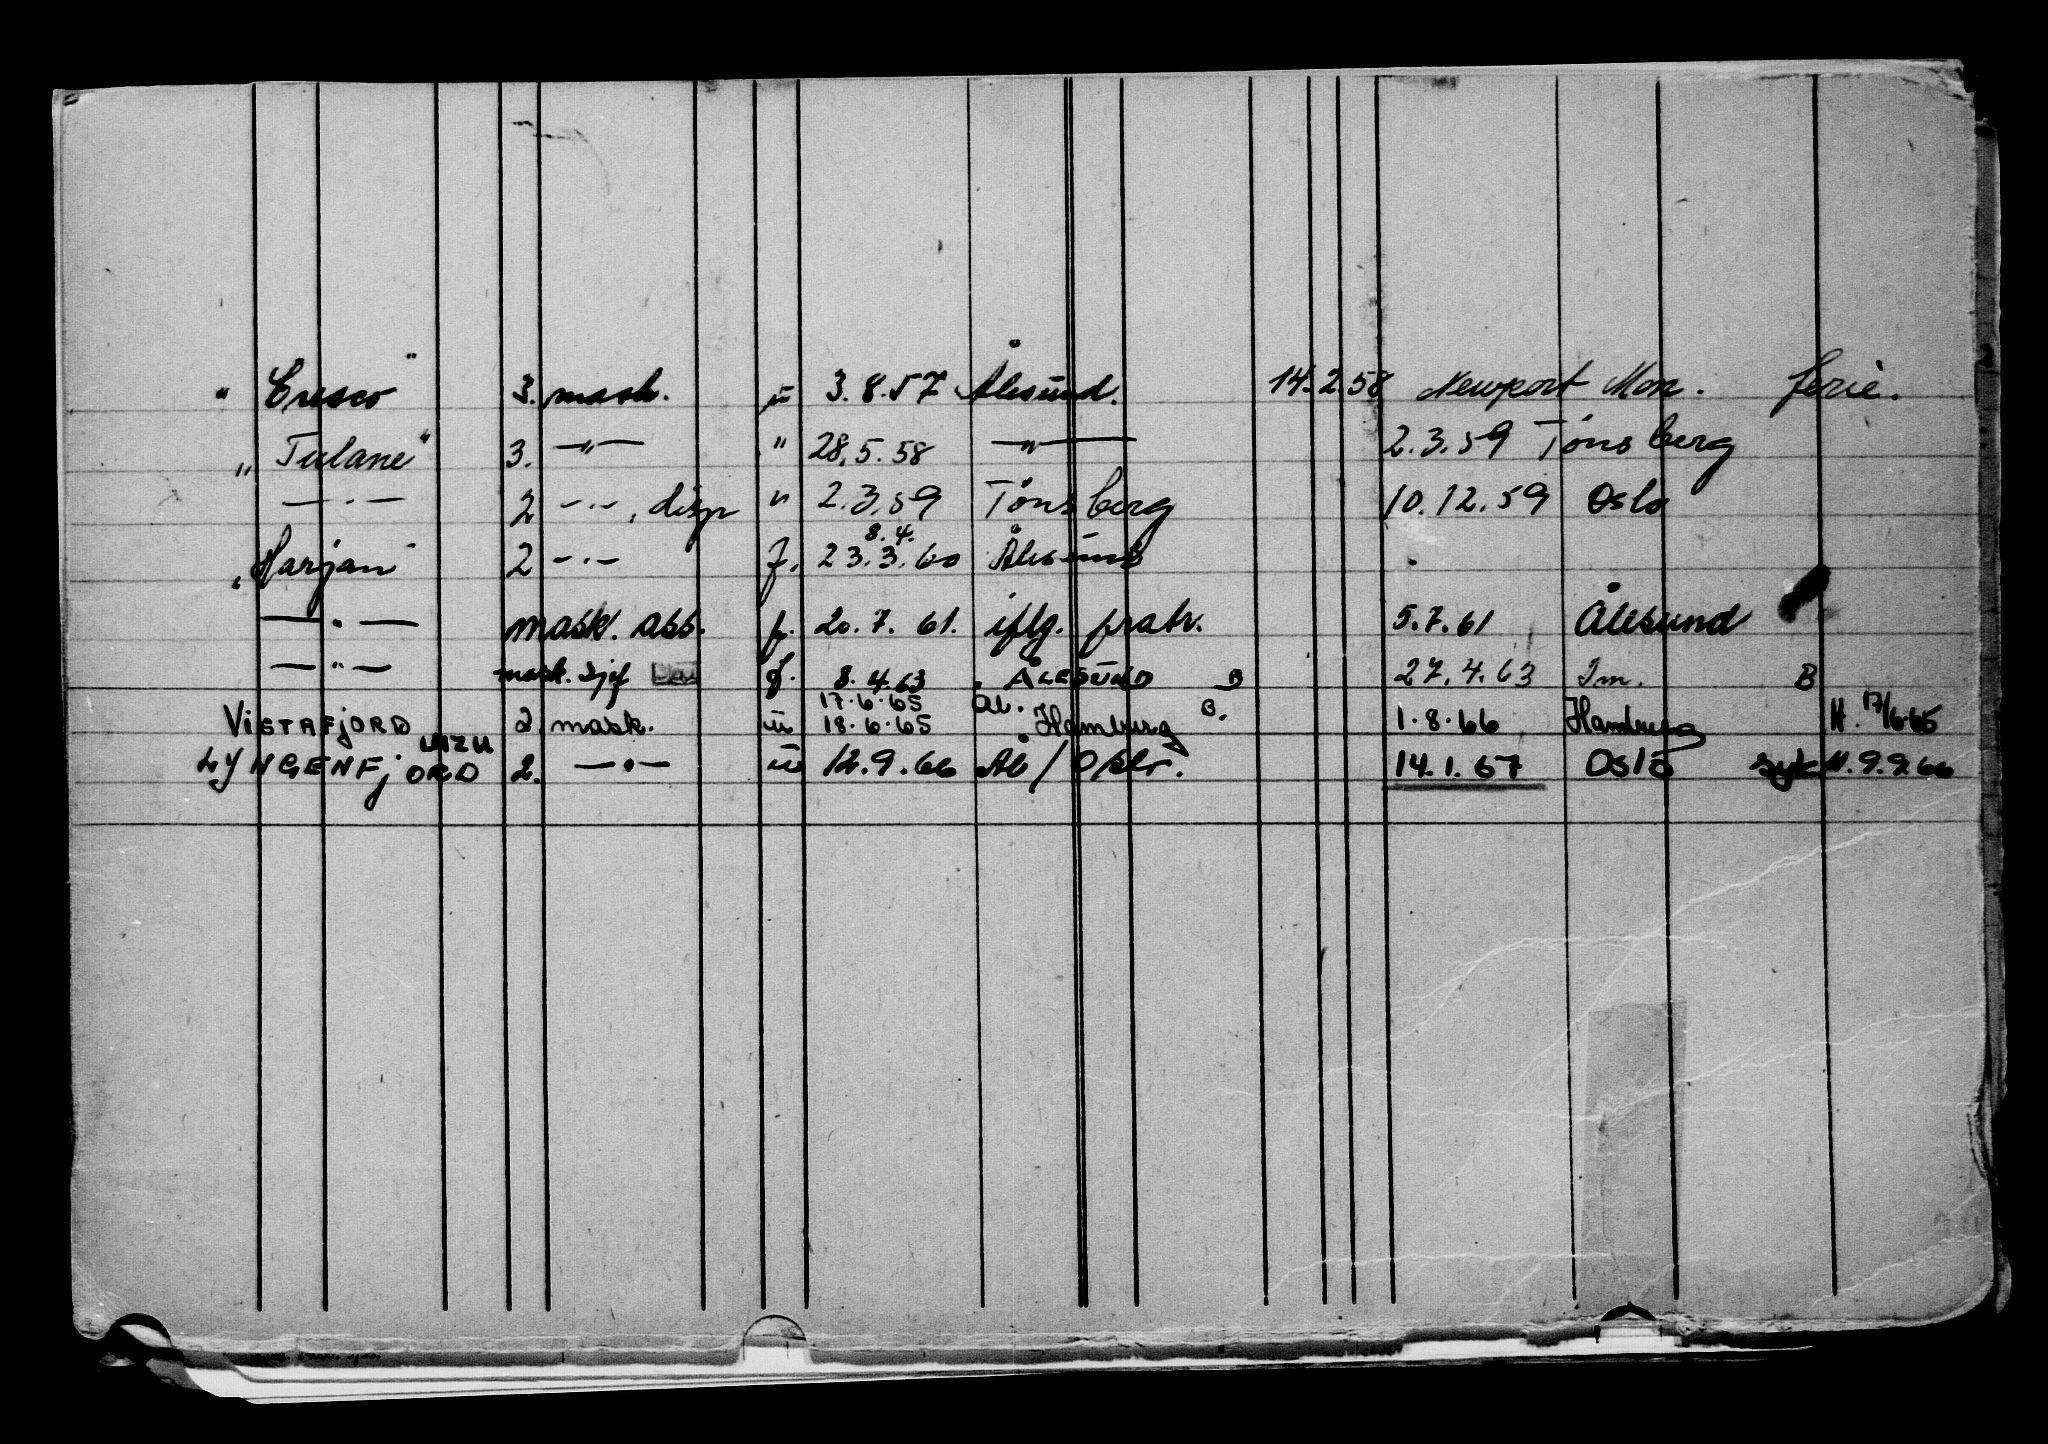 " Cresco " 3. mask. u 3.8.57 Ålesund. 14.2.58 Newport Mon. ferie.
" Tulane " 3. —"— " 28.5.58 —"— 2.3.59 Tønsberg
—"— 2 —"—, disp " 2.3.59 Tønsberg 10.12.59 Oslo
8.4.
" Harjan " 2 —"— f. 23.3.60 Ålesund
—"— mask. ass. f. 20.7.61. iflg. fratr. 5.7.61 Ålesund
—"— mask. sjef f. 8.4.63 ÅLESUND B 27.4.63 Im. B
17.6.65 Ål. B. 17/6.65
VISTAFJORD 2. mask. u 18.6.65 Hamburg 1.8.66 Hamburg H.
LMZU
LYNGENFJORD 2. —"— u 12.9.66 Ål / Oslo. 14.1.67 Oslo syk H. 9.9.66